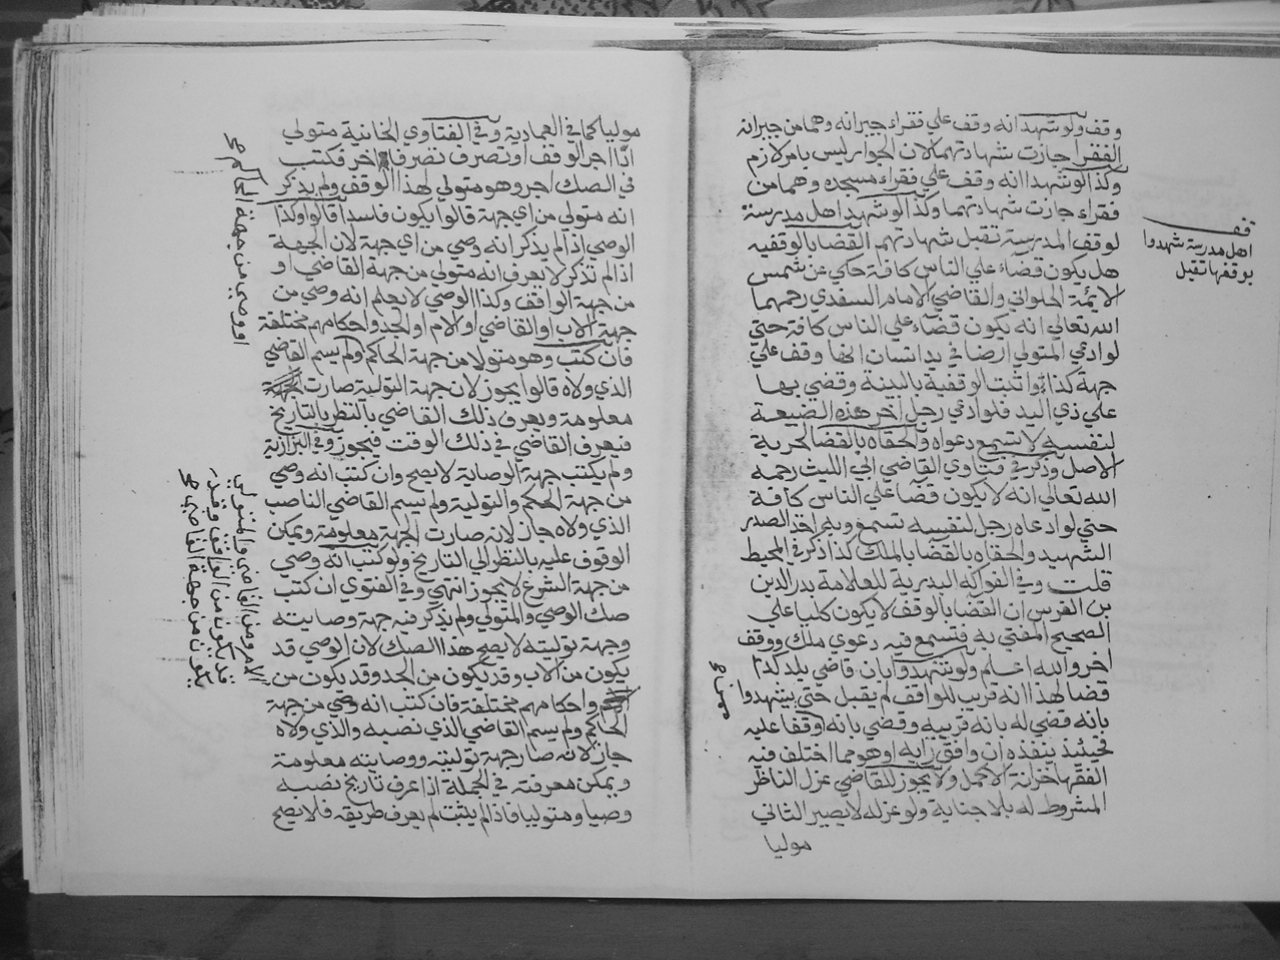 وقف ولو شهدا انه وقف علي فقراء جيرانه وهما من جيرانه
الفقرا جازت شهادتهما لان الجوار ليس بامر لازم
وكذا لو شهدا انه وقف علي فقراء مسجده وهما من
فقراء جازت شهادتهما وكذا لو شهد اهل مدرسة
لوقف المدرسة تقبل شهادتهم القضا بالوقفيه
هل يكون قضاء علي الناس كافة حكي عن شمس
الايمة الحلواني والقاضي الامام السغدي رحمهما
الله تعالي انه يكون قضاء علي الناس كافة حتي
لو ادعي المتولي ارضا في يد انسان انها وقف علي
جهة كذا واثبت الوقفية بالبينة وقضي بها
علي ذي اليد فلو ادعي رجل اخر هذه الضيعة
لنفسه لا تسمع دعواه والحقاه بالقضا لحرية
الاصل وذكر في فتاوي القاضي ابي الليث رحمه
الله تعالي انه لا يكون قضا علي الناس كافة
حتي لو ادعاه رجل لنفسه تسمع وبه اخذ الصدر
الشهيد والحقاه بالقضا بالملك كذا ذكر في المحيط
قلت وفي الفواكه البدرية للعلامة بدر الدين
بن الغرس ان القضا بالوقف لا يكون كليا علي
الصحيح المفتي به فتسمع فيه دعوي ملك ووقف
اخر والله اعلم ولو شهدوا بان قاضي بلد كذا
قضا لهذا انه قريب للواقف لم يقبل حتي يشهدوا
بانه قضي له بانه قريبه وقضي بانه وقفا عليه
فحينئذ ينفذه ان وافق رايه او هو مما اختلف فيه
الفقها خزانة الاكمل ولا يجوز للقاضي عزل الناظر
المشروط له بلا جناية ولو عزله لا يصير الثاني
موليا
قف
اهل مدرسة شهدوا
بوقفها تقبل
موليا كما في العمادية وفي الفتاوي الخانية متولي
اذا اجر الوقف او تصرف تصرفا اخر فكتب
في الصك اجر وهو متولي لهذا الوقف ولم يذكر
انه متولي من اي جهة قالوا يكون فاسدا قالوا وكذا
الوصي اذا لم يذكر انه وصي من اي جهة لان الجهة
اذا لم تذكر لا يعرف انه متولي من جهة القاضي او
من جهة الواقف وكذا الوصي لا يعلم انه وصي من
جهة الاب او القاضي او الام او الجد واحكامهم مختلفة
فان كتب وهو متولا من جهة الحاكم ولم يسم القاضي
الذي ولاه قالوا يجوز لان جهة التولية صارت
معلومة ويعرف ذلك القاضي بالنظر بالتاريخ
فيعرف القاضي في ذلك الوقت فيجوز وفي البزازية
ولم يكتب جهة الوصاية لا يصح وان كتب انه وصي
من جهة الحكم والتولية ولم يسم القاضي الناصب
الذي ولاه جاز لانه صارت الجهة معلومة ويمكن
الوقوف عليه بالنظر الي التاريخ ولو كتب انه وصي
من جهة الشرع لا يجوز انتهي وفي الفتوي ان كتب
صك الوصي والمتولي ولم يذكر فيه جهة وصايته
وجهة توليته لا يصح هذا الصك لان الوصي قد
يكون من الاب وقد يكون من الجد وقد يكون من
واحكامهم مختلفة فان كتب انه وصي من جهة
الحاكم ولم يسم القاضي الذي نصبه والذي ولاه
جاز لانه صار جهة توليته ووصايته معلومة
ويمكن معرفته في الجملة اذا عرف تاريخ نصبه
وصيا ومتوليا فاذا لم يثبت لم يعرف طريقه فلا يصح
او وصي من جهة الحاكم صح
الام ومن القاضي والمتولي
قد يكون من الواقف وقد
يكون من جهة القاضي صح